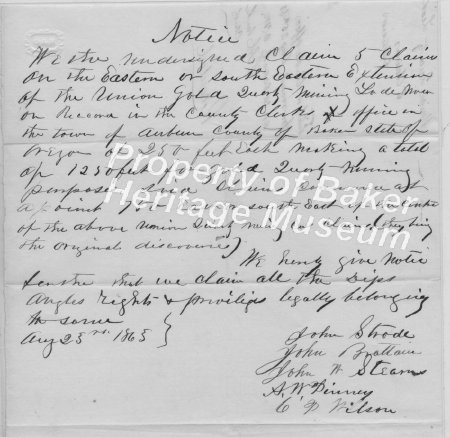 Notice
We the undersigned Claim 5 Claims
on the Eastern or south Eastern Extension
of the Union Gold Quartz Mining Lode now
on Record in the County Clerks office in
the town of Auburn County of Baker state of
Oregon of 250 feet Each making a total
of 1250 feet for Quartz Mining
purposes Said Claims Commence at
a point East or south East of the
of the above Union Quartz
the original discoveries)
We hereby give Notice
further that we claim all the Dips
Angles rights & privileges legally belonging
to same
Aug 23rd 1863 }
John Strode
John Brattain
John W Stearns
A. W. Binney
C. D Wilson
Property of Baker
Heritage Museum